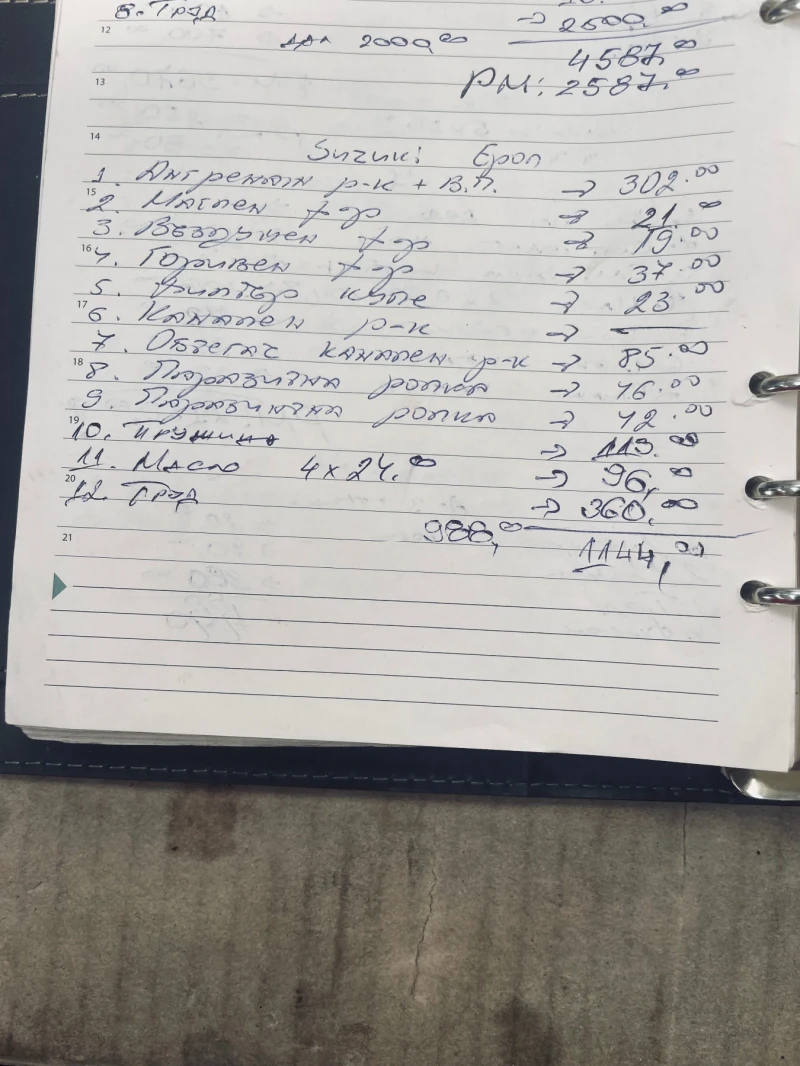 8. Труд → 2600.00
12
дал 2000,00 4587.00
РМ: 2587.00
13
14
Suzuki Ерол
1. Ангренажн р-к + В.П. → 302.00
15
2. Маслен ф-р → 21.00
3. Въздушен ф-р → 19.00
16
4. Горивен ф-р → 37.00
5. Филтър купе → 23.00
17
6. Канален р-к → —
7. Обтегач канален р-к → 85.00
18
8. Паразитна ролка → 46.00
9. Паразитна ролка → 42.00
19
10. Пружина → 113.00
11. Масло 4 x 24.00 → 96,00
20
12. Труд → 360.00
988,00 1144,00
21